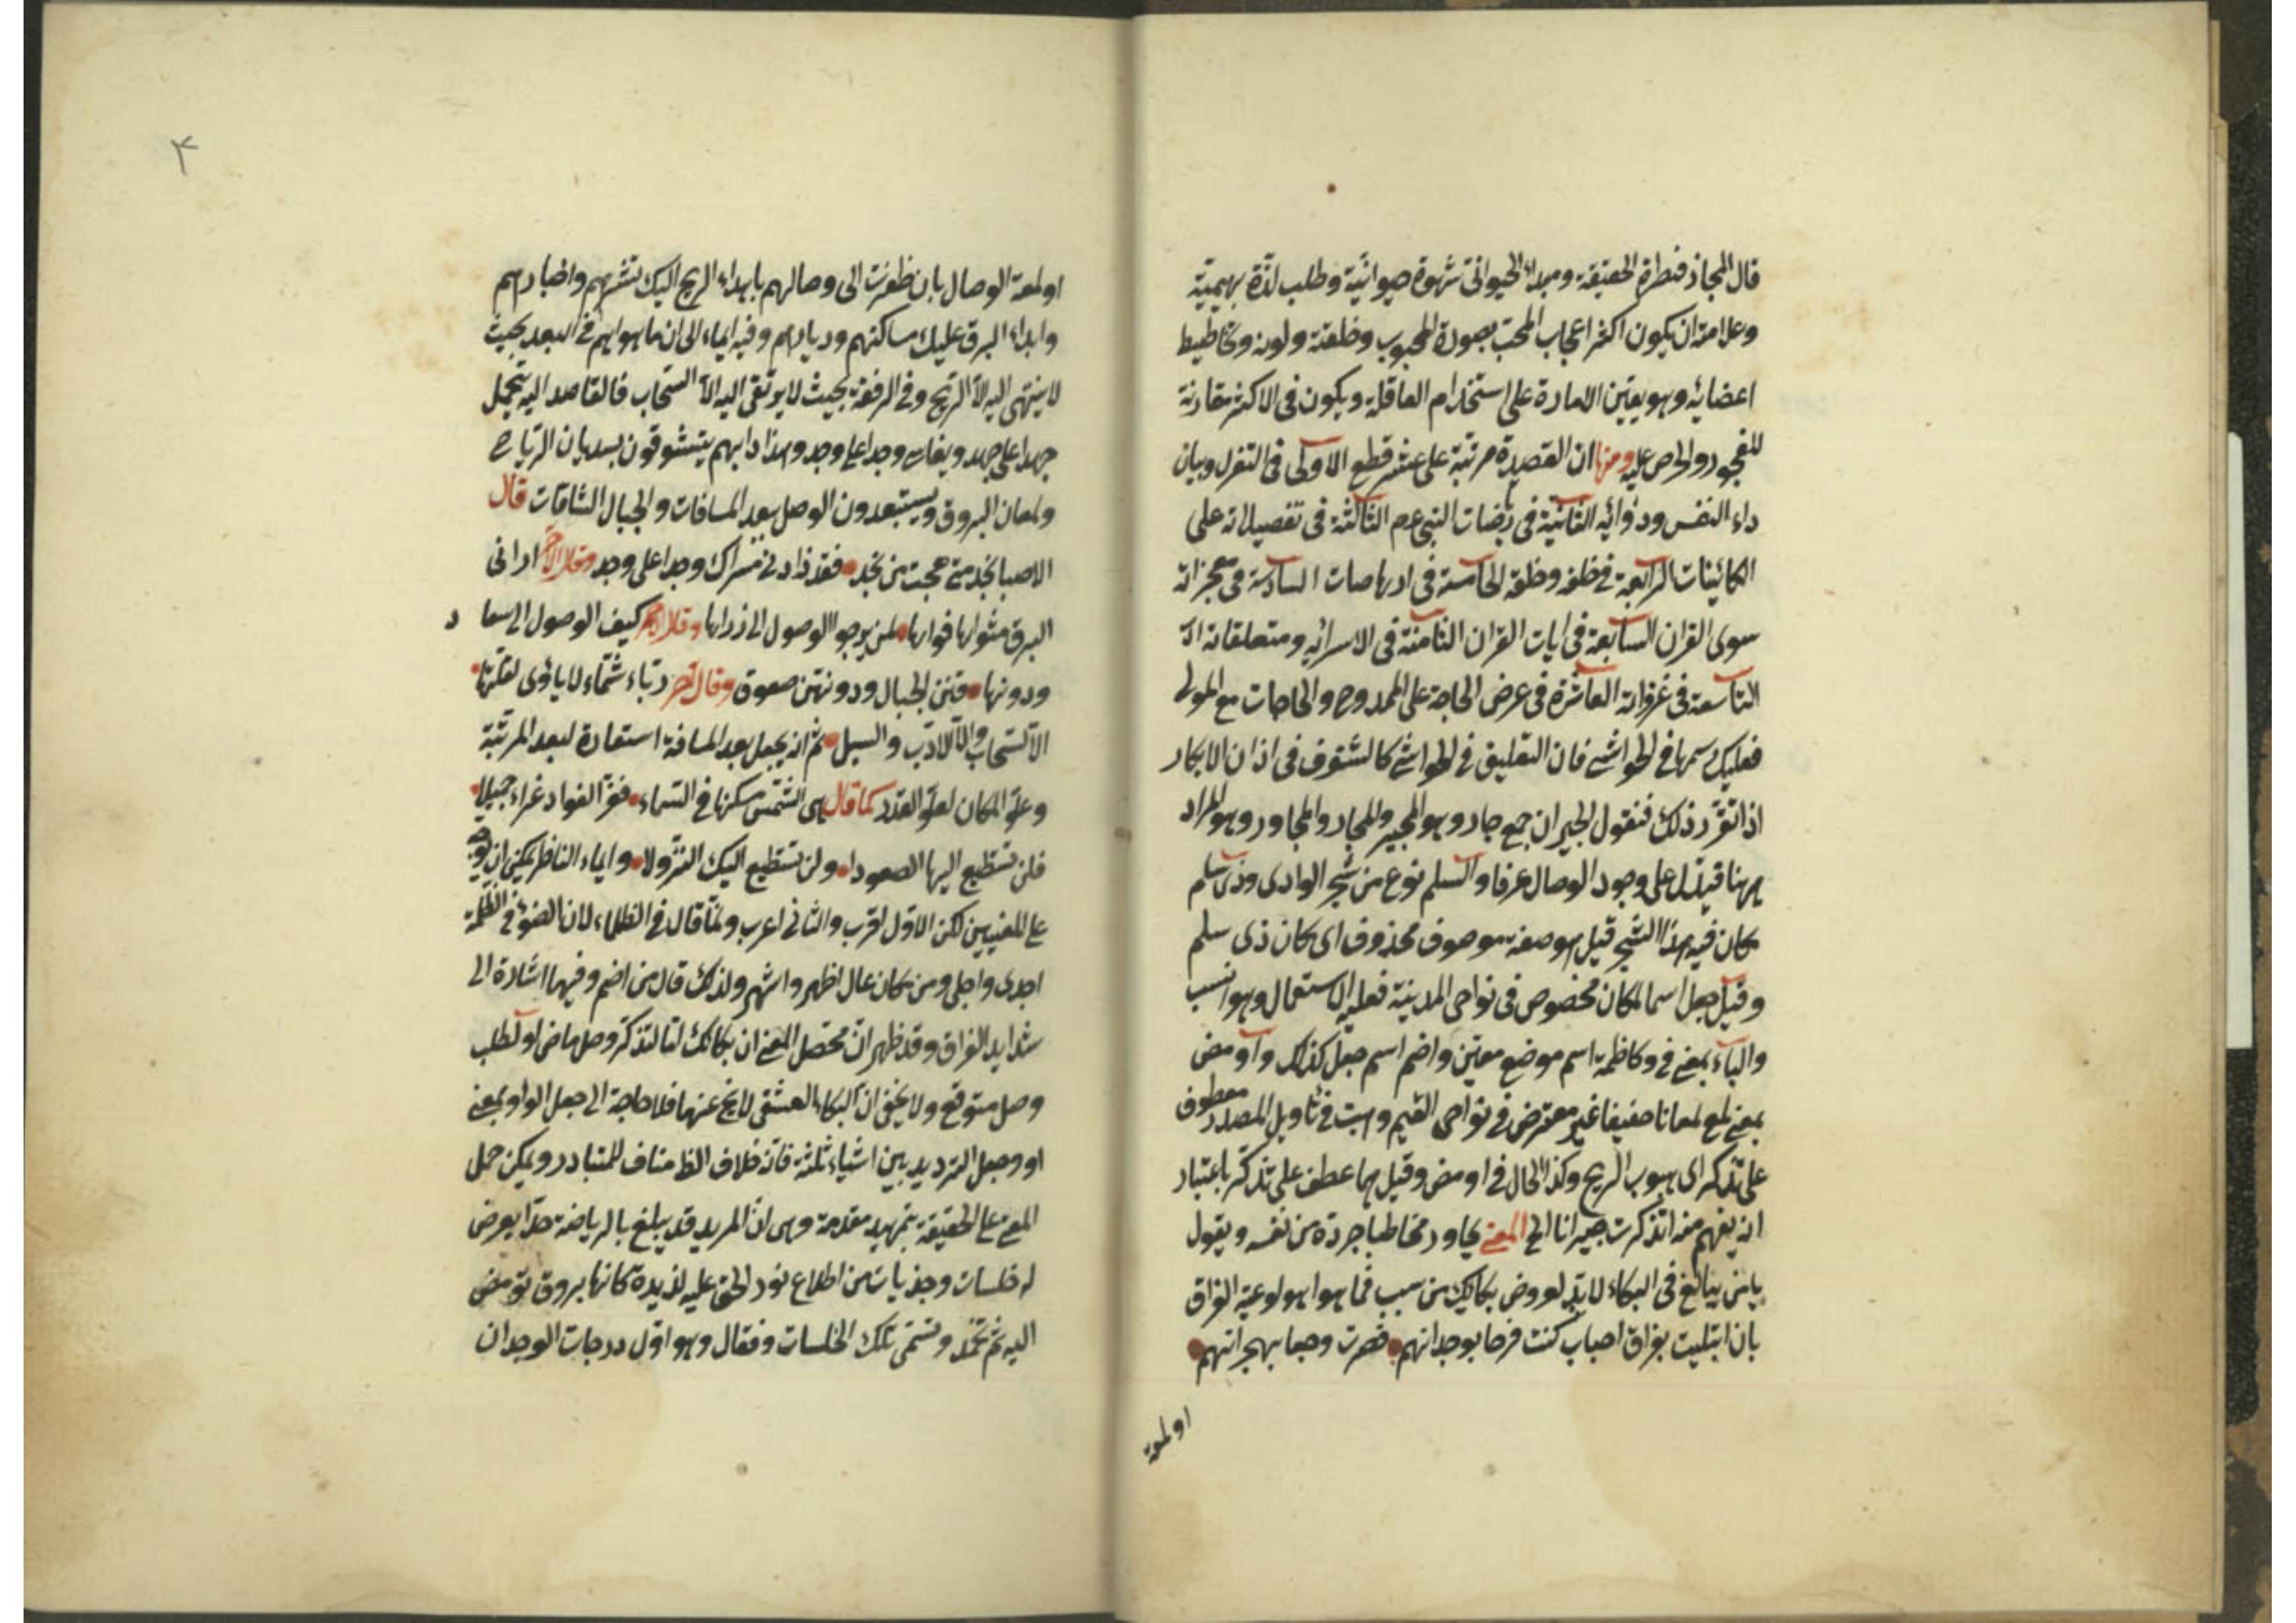 قال المجاز قنطرة الحقيقة ومبداء الحيوانى شهوة حيوانية وطلب لذة بهيمية
وعلامته ان يكون اكثر اعجاب المحب بصورة المحبوب وخلقته ولونه وتخاطيط
اعضائه وهو يعين الامارة على استخدام العاقلة ويكون فى الاكثر مقارنة
للفجور والحرص عليه ومنها ان القصيدة مرتبة على عشر قطع الاولى فى التغزل وبيان
داء النفس ودوائه الثانية فى النبى عم الثالثة فى تفصيلاته على
الكائينات الرابعة فى خلقه وخلقه الخامسة فى ارهاصات السادسة فى معجزاته
سوى القران السابعة فى ايات القران الثامنة فى الاسرائه ومتعلقاته
التاسعة فى غزواته العاشرة فى عرض الحاجة على الممدوح والحاجات مع المولى
فعليك سمها فى الحواشى فان التعليق فى الحواشى كالشنوف فى اذان الابكار
اذا تقرر ذلك فنقول الجيران جمع جار وهو المجير والمجار والمجاور وهو المراد
ههنا قيدل على وجود الوصال عرفا والسلم نوع من شجر الوادى وذى سلم
مكان فيه هذا الشجر قيل هو صفة موصوف محذوف اى مكان ذى سلم
وقيل جعل اسما لمكان مخصوص فى نواحى المدينة فعليه الاستعمال وهو انسب
والباء بمعنى فى وكاظمة اسم موضع معين واضم اسم جبل كذلك واومض
بمعنى لمع لمعانا خفيفا غير معترض فى نواحى الغيم وهبت فى تاويل المصدر معطوف
على تذكر اى هبوب الريح وكذا الحال فى اومض وقيل هما عطف على تذكر باعتبار
انه يفهم منه اتذكرت جيرانا الخ المعنى يحاور مخاطبا جرده من نفسه ويقول
يا من يبالغ فى البكاء لا بد لعروض بكائك من سبب فما هو اهو لوعة الفراق
بان ابتليت بفراق احباب كنت فرحا بوجدانهم فصرت وجعا بهجرانهم
او لمعة
٣
او لمعة الوصال بان ظفرت الى وصالهم باهداء الريح اليك نشرهم واخبارهم
وابداء البرق عليك مساكنهم وديارهم وفيه ايماء الى ان ما هو ايهم فى البعد بحيث
لا ينتهى اليه الا الريح وفى الرفعة بحيث لا يرتقى اليه الا السحاب فالقاصد اليه يتحمل
جهدا على جهد ويقاسى وجدا على وجد وهذا دابهم يتشوقون بهبوب الرياح
ولمعان البروق ويستبعدون الوصل ببعد المسافات والجبال الشاقات قال
الا صبا نجد متى هجت من نجد فقد زادنى مسراك وجدا على وجد وقال الاخر ارانى
البرق مثواها فواها لمن يرجو الوصول الى ذراها وقال اخر كيف الوصول الى سعاد
ودونها قنن الجبال ودونهن حتوف وقال اخر رباء شماء لا ياوى لقلتها
الا السحاب والا الاوب والسبل ثم انه يجعل بعد المسافة استعارة لبعد المرتبة
وعلو المكان لعلو القدر كما قال هى الشمس مسكنها فى السماء فعز الفواد عزاء جميلا
فلن تستطيع اليها الصعودا ولن تستطيع اليك النزولا وايماء الناظر يمكن ان يوجه
على المعنيين لكن الاول اقرب والثانى اعرب وانما قال فى الظلماء لان الضوء فى الظلمة
اجدى واجلى ومن مكان عال اظهر واشهر ولذلك قال من اضم وفيها اشارة الى
شدايد الفراق وقد ظهر ان محصل المعنى ان بكائك اما لتذكر وصل ماض او لطلب
وصل متوقع ولا يخفى ان البكاء العشقى لا يخ عنهما فلا حاجة الى جعل الواو بمعنى
او وجعل الترديد بين اشياء ثلثة فانه خلاف الظ مناف للمتبادر ويمكن حمل
المعنى على الحقيقة بتمهيد مقدمة وهى ان المريد قد يبلغ بالرياضة حدا يعرض
له خلسات وجذبات من اطلاع نور الحق عليه لذيذة كانها بروق تومض
اليه ثم تخمد وتسمى تلك الخلسات وقفال وهو اول درجات الوجدان